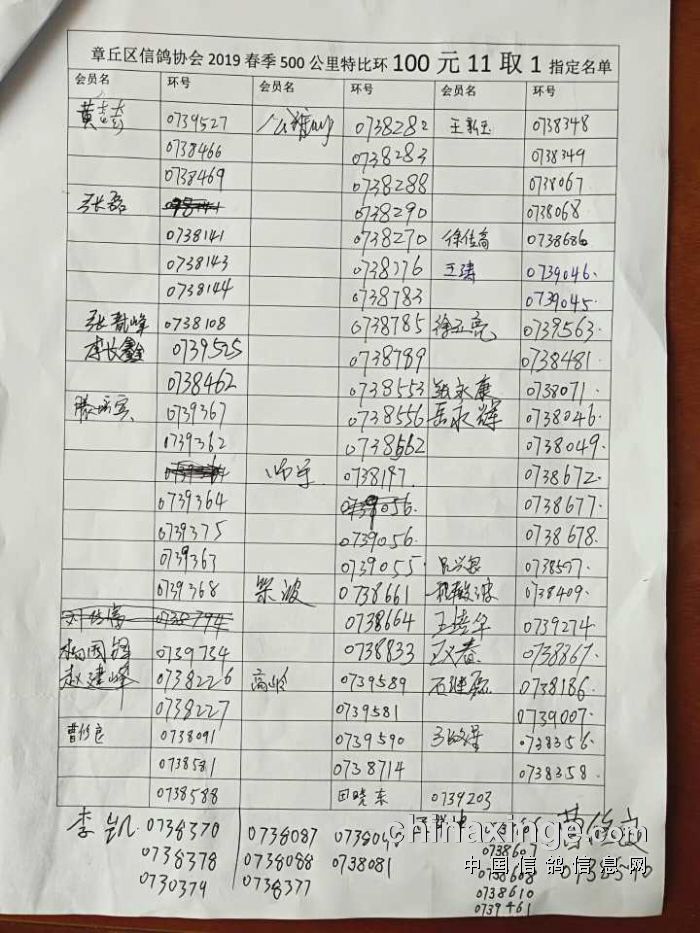 章丘区信鸽协会 2019 春季 500 公里特比环 100 元 11 取 1 指定名单
会员名 环号 会员名 环号 会员名 环号
0739527 0738282 王新玉 0738348
0738466 0738283 0738349
0738469 0738288 0738067
张磊 0738290 0738068
0738141 0738270 徐佳高 0738686
0738143 0738276 王涛 0739046
0738144 0738783 0739045
0738108 0738785 徐五亮 0739563
李长鑫 0739525 0738789 0738481
0738462 0738553 0738071
0739367 0738556 岳永辉 0738046
0739362 0738662 0738049
0738197 0738672
0739364 0739056 0738677
0739375 0739056 0738678
0739363 0739055 0738597
0739368 柴波 0738661 0738409
0738794 0738664 王培华 0739274
杨国锋 0739734 0738833 王义春 0738867
赵建峰 0738226 高岭 0739589 石继磊 0738186
0738227 0739581 0739007
曹修良 0738091 0739590 0738356
0738581 0738714 0738358
0738588 田晓东 0739203
李凯 0738370 0738087
0738378 0738088 0738081 0738607
0730379 0738377 0738608
0738610
0739461
chinaxinge.com
中国信鸽信息网